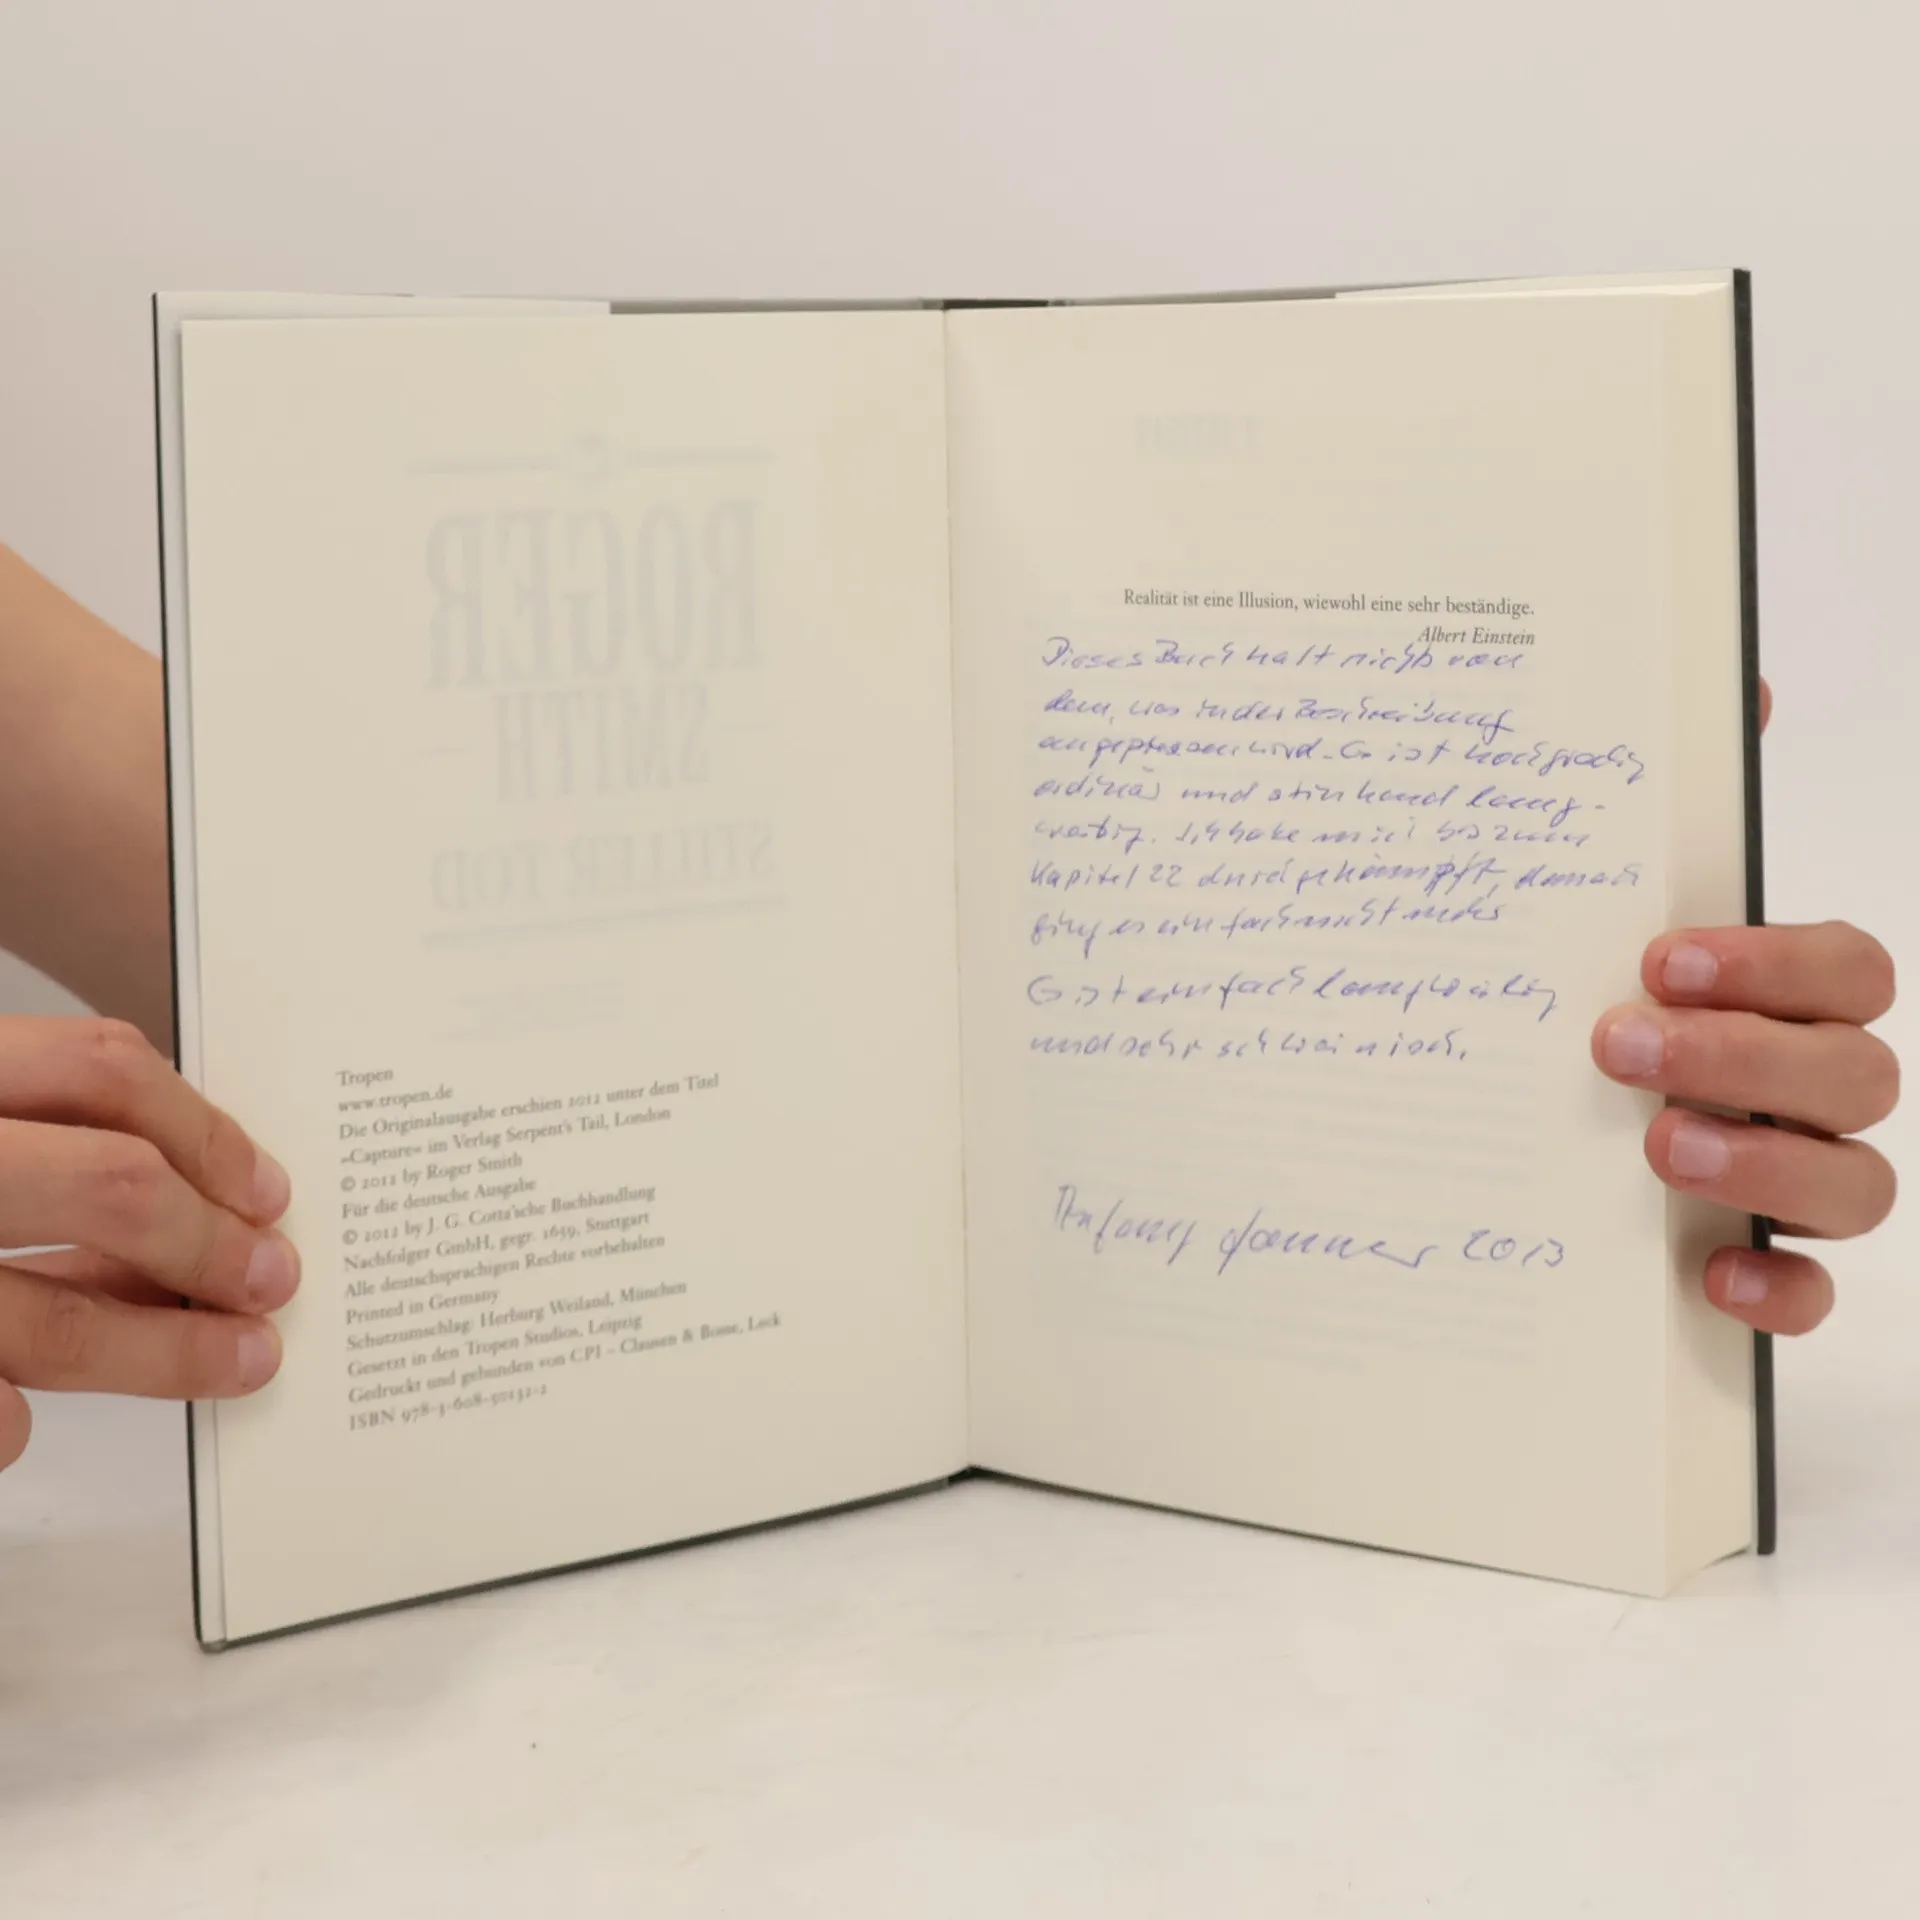 ROGER
SMITH
STILLER TOD
Tropen
www.tropen.de
Die Originalausgabe erschien 2012 unter dem Titel
»Capture« im Verlag Serpent's Tail, London
© 2012 by Roger Smith
Für die deutsche Ausgabe
© 2012 by J. G. Cotta'sche Buchhandlung
Nachfolger GmbH, gegr. 1659, Stuttgart
Alle deutschsprachigen Rechte vorbehalten
Printed in Germany
Schutzumschlag: Herburg Weiland, München
Gesetzt in den Tropen Studios, Leipzig
Gedruckt und gebunden von CPI – Clausen & Bosse, Leck
ISBN 978-3-608-50132-2
Realität ist eine Illusion, wiewohl eine sehr beständige.
Albert Einstein
Dieses Buch halt nichts von
dem, was in der Beschreibung
angepriesen wird. Es ist hochgradig
ordinär und stinkend lang-
weilig. Ich habe mich bis zum
Kapitel 22 durchgekämpft, danach
ging es einfach nicht mehr
Es ist einfach langweilig
und sehr schweinisch.
Anfang Januar 2013